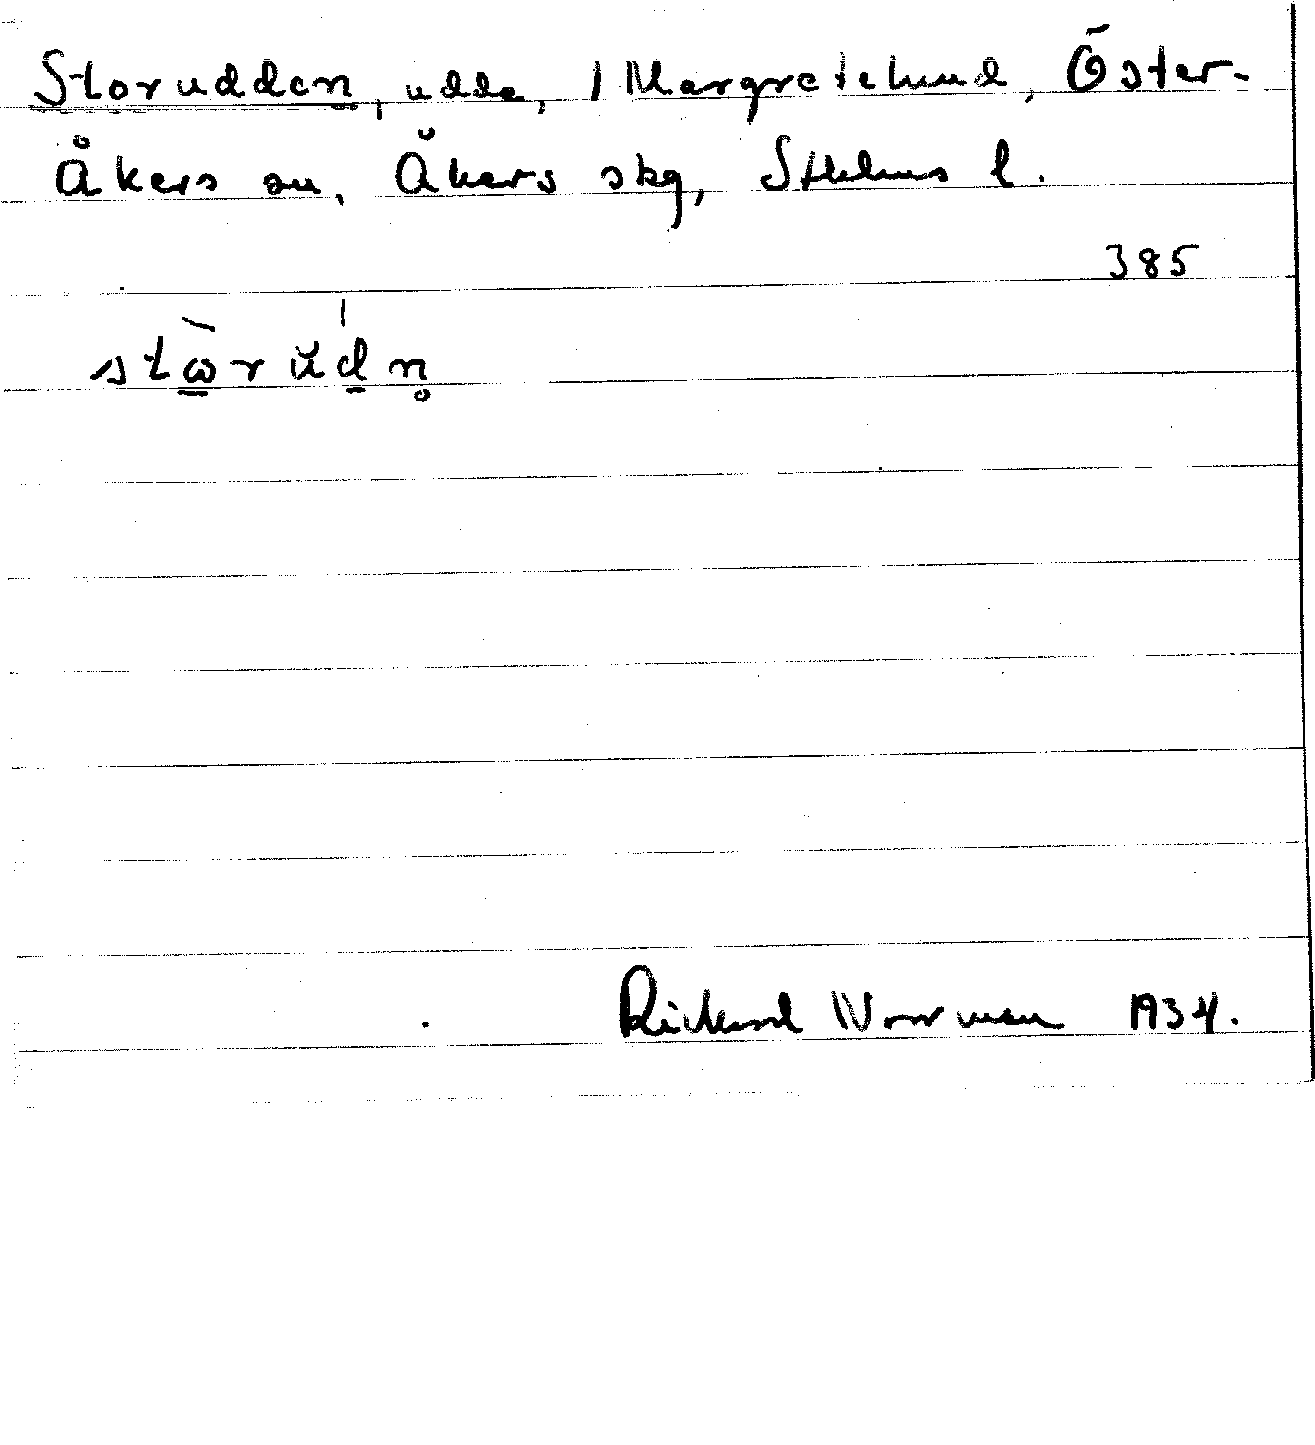 Storudden, udde, 1 Margretelund, Öster-
Åkers sn, Åkers skg, Sthlms l.
385
stωrŭdn̥
Rickard Norrman 1934.